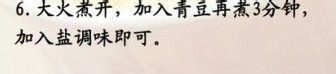 6.大火煮开，加入青豆再煮3分钟，
加入盐调味即可。